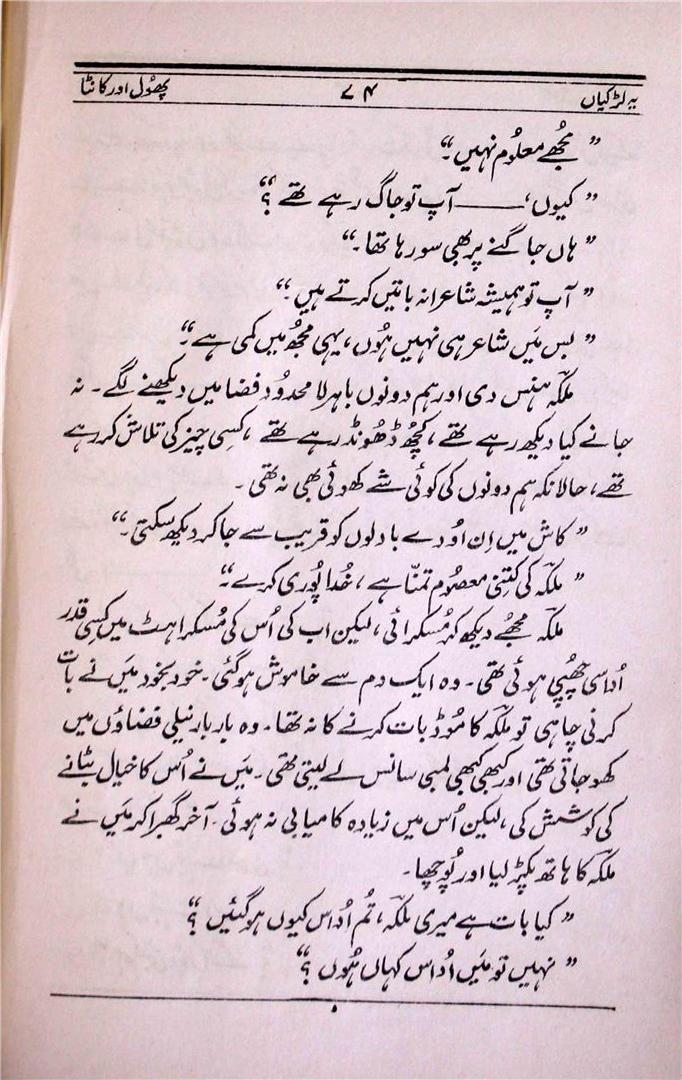 یہ لڑکیاں ۷۴ پھُول اور کانٹا
”مجُھے معلوُم نہیں۔“
”کیوں،——— آپ تو جاگ رہے تھے ؟“
”ہاں جاگنے پر بھی سو رہا تھا۔“
”آپ تو ہمیشہ شاعرانہ باتیں کرتے ہیں۔“
”بس مَیں شاعر ہی نہیں ہُوں، یہی مجُھ میں کمی ہے۔“
ملکہّ ہنس دی اور ہم دونوں باہر لامحدوُد فضا میں دیکھنے لگے۔ نہ
جانے کیا دیکھ رہے تھے، کچُھ ڈھُونڈ رہے تھے، کِسی چیز کی تلاش کر رہے
تھے، حالانکہ ہم دونوں کی کوئی شے کھوئی بھی نہ تھی۔
”کاش میں اِن اوُدے بادلوں کو قریب سے جا کر دیکھ سکتی۔“
”ملکہّ کی کِتنی معصوُم تمناّ ہے، خُدا پوُری کرے۔“
ملکہّ مجُھے دیکھ کر مُسکرائی، لیکن اب کی اُس کی مُسکراہٹ میں کِسی قدر
اُداسی چھپُی ہوئی تھی۔ وہ ایک دم سے خاموش ہو گئی۔ خود بخود مَیں نے بات
کرنی چاہی تو ملکہّ کا مُوڈ بات کرنے کا نہ تھا۔ وہ بار بار نیلی فضاؤں میں
کھو جاتی تھی اور کبھی کبھی لمبی سانس لے لیتی تھی۔ مَیں نے اُس کا خیال بٹانے
کی کوشش کی، لیکن اُس میں زیادہ کامیابی نہ ہوئی۔ آخر گھبرا کر مَیں نے
ملکہّ کا ہاتھ پکڑ لیا اور پوُچھا۔
”کیا بات ہے میری ملکہّ، تُم اُداس کیوں ہو گئیں ؟“
”نہیں تو مَیں اُداس کہاں ہُوں ؟“